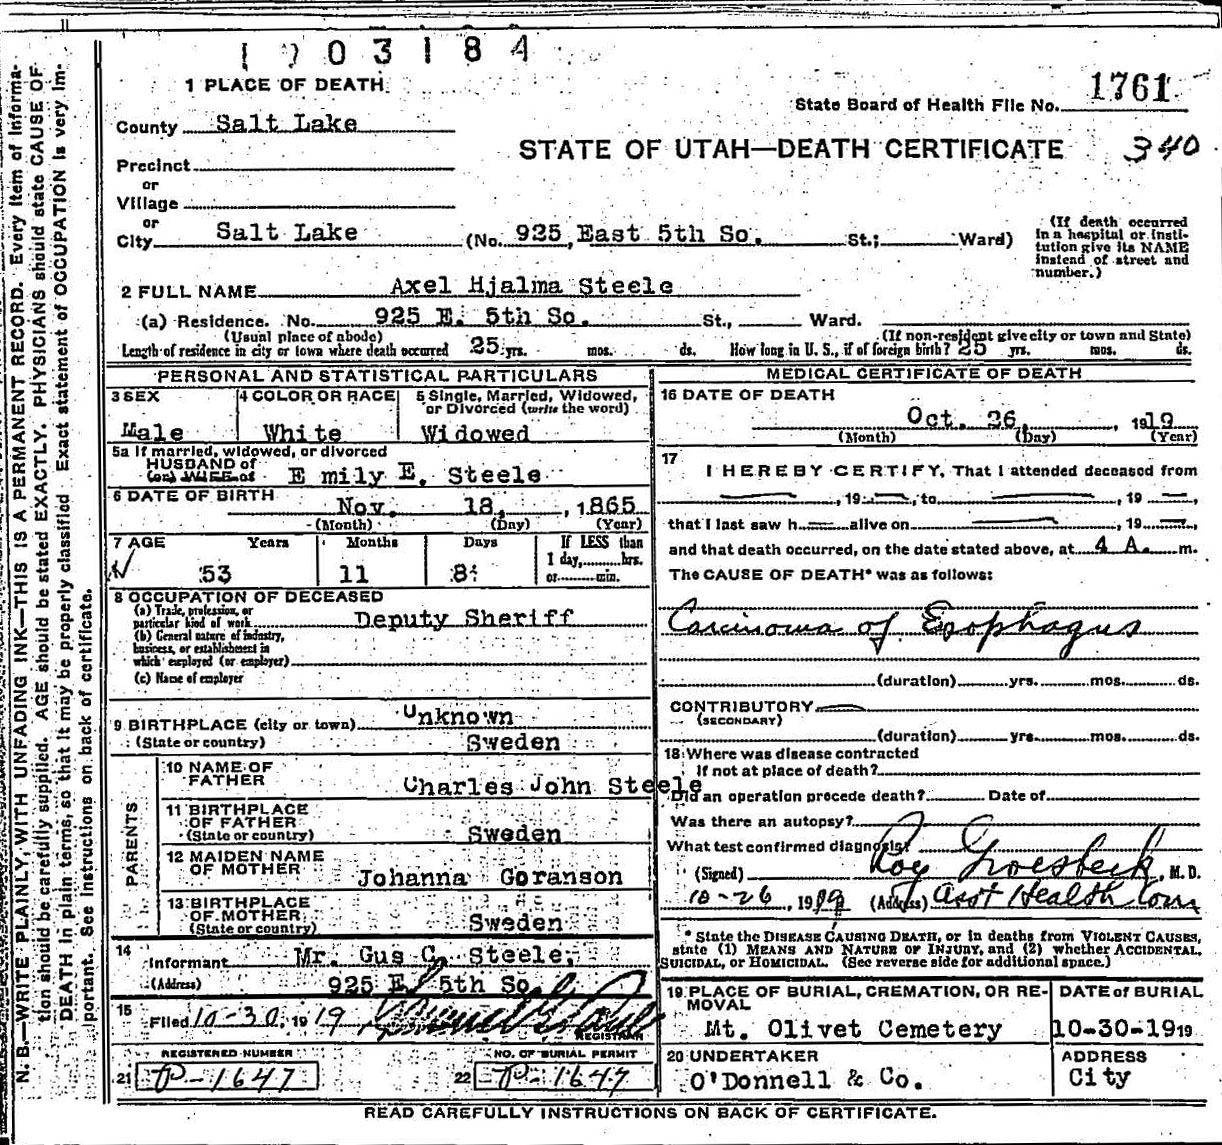 1003184
1 PLACE OF DEATH
State Board of Health File No. 1761
County Salt Lake
STATE OF UTAH—DEATH CERTIFICATE 340
Precinct
or
Village
or
City Salt Lake (No. 925 East 5th So. St.; Ward)
(If death occurred
in a hospital or insti-
tution give its NAME
instead of street and
number.)
2 FULL NAME Axel Hjalma Steele
(a) Residence. No. 925 E. 5th So. St., Ward.
(Usual place of abode) (If non-resident give city or town and State)
Length of residence in city or town where death occurred 25 yrs. mos. ds. How long in U. S., if of foreign birth? 25 yrs. mos. ds.
PERSONAL AND STATISTICAL PARTICULARS
3 SEX
Male
4 COLOR OR RACE
White
5 Single, Married, Widowed,
or Divorced (write the word)
Widowed
5a If married, widowed, or divorced
HUSBAND of
(or) WIFE of E mily E. Steele
6 DATE OF BIRTH
Nov. 18, , 1865
(Month) (Day) (Year)
7 AGE Years Months Days If LESS than
1 day, hrs.
53 11 8 or min.
8 OCCUPATION OF DECEASED
(a) Trade, profession, or
particular kind of work Deputy Sheriff
(b) General nature of industry,
business, or establishment in
which employed (or employer)
(c) Name of employer
9 BIRTHPLACE (city or town) Unknown
(State or country) Sweden
PARENTS
10 NAME OF
FATHER Charles John Steele
11 BIRTHPLACE
OF FATHER
(State or country) Sweden
12 MAIDEN NAME
OF MOTHER
Johanna Goranson
13 BIRTHPLACE
OF MOTHER
(State or country) Sweden
14
Informant Mr. Gus C. Steele,
(Address) 925 E. 5th So.
15
Filed 10-30, 1919
REGISTRAR
REGISTERED NUMBER
21 P-1647
NO. OF BURIAL PERMIT
22 P-1647
MEDICAL CERTIFICATE OF DEATH
16 DATE OF DEATH
Oct. 26, , 1919
(Month) (Day) (Year)
17
I HEREBY CERTIFY, That I attended deceased from
, 19 , to , 19 ,
that I last saw h alive on , 19 ,
and that death occurred, on the date stated above, at 4 A. m.
The CAUSE OF DEATH* was as follows:
Carcinoma of Esophagus
(duration) yrs. mos. ds.
CONTRIBUTORY
(SECONDARY)
(duration) yrs. mos. ds.
18 Where was disease contracted
If not at place of death?
Did an operation precede death? Date of
Was there an autopsy?
What test confirmed diagnosis?
(Signed) Roy Groesbeck, M. D.
10-26, 1919 (Address) Asst Health Com
* State the DISEASE CAUSING DEATH, or in deaths from VIOLENT CAUSES,
state (1) MEANS AND NATURE OF INJURY, and (2) whether ACCIDENTAL,
SUICIDAL, or HOMICIDAL. (See reverse side for additional space.)
19 PLACE OF BURIAL, CREMATION, OR RE-
MOVAL
Mt. Olivet Cemetery
DATE of BURIAL
10-30-1919
20 UNDERTAKER
O'Donnell & Co.
ADDRESS
City
READ CAREFULLY INSTRUCTIONS ON BACK OF CERTIFICATE.
N. B.—WRITE PLAINLY, WITH UNFADING INK—THIS IS A PERMANENT RECORD. Every item of informa-
tion should be carefully supplied. AGE should be stated EXACTLY. PHYSICIANS should state CAUSE OF
DEATH in plain terms, so that it may be properly classified. Exact statement of OCCUPATION is very im-
portant. See instructions on back of certificate.